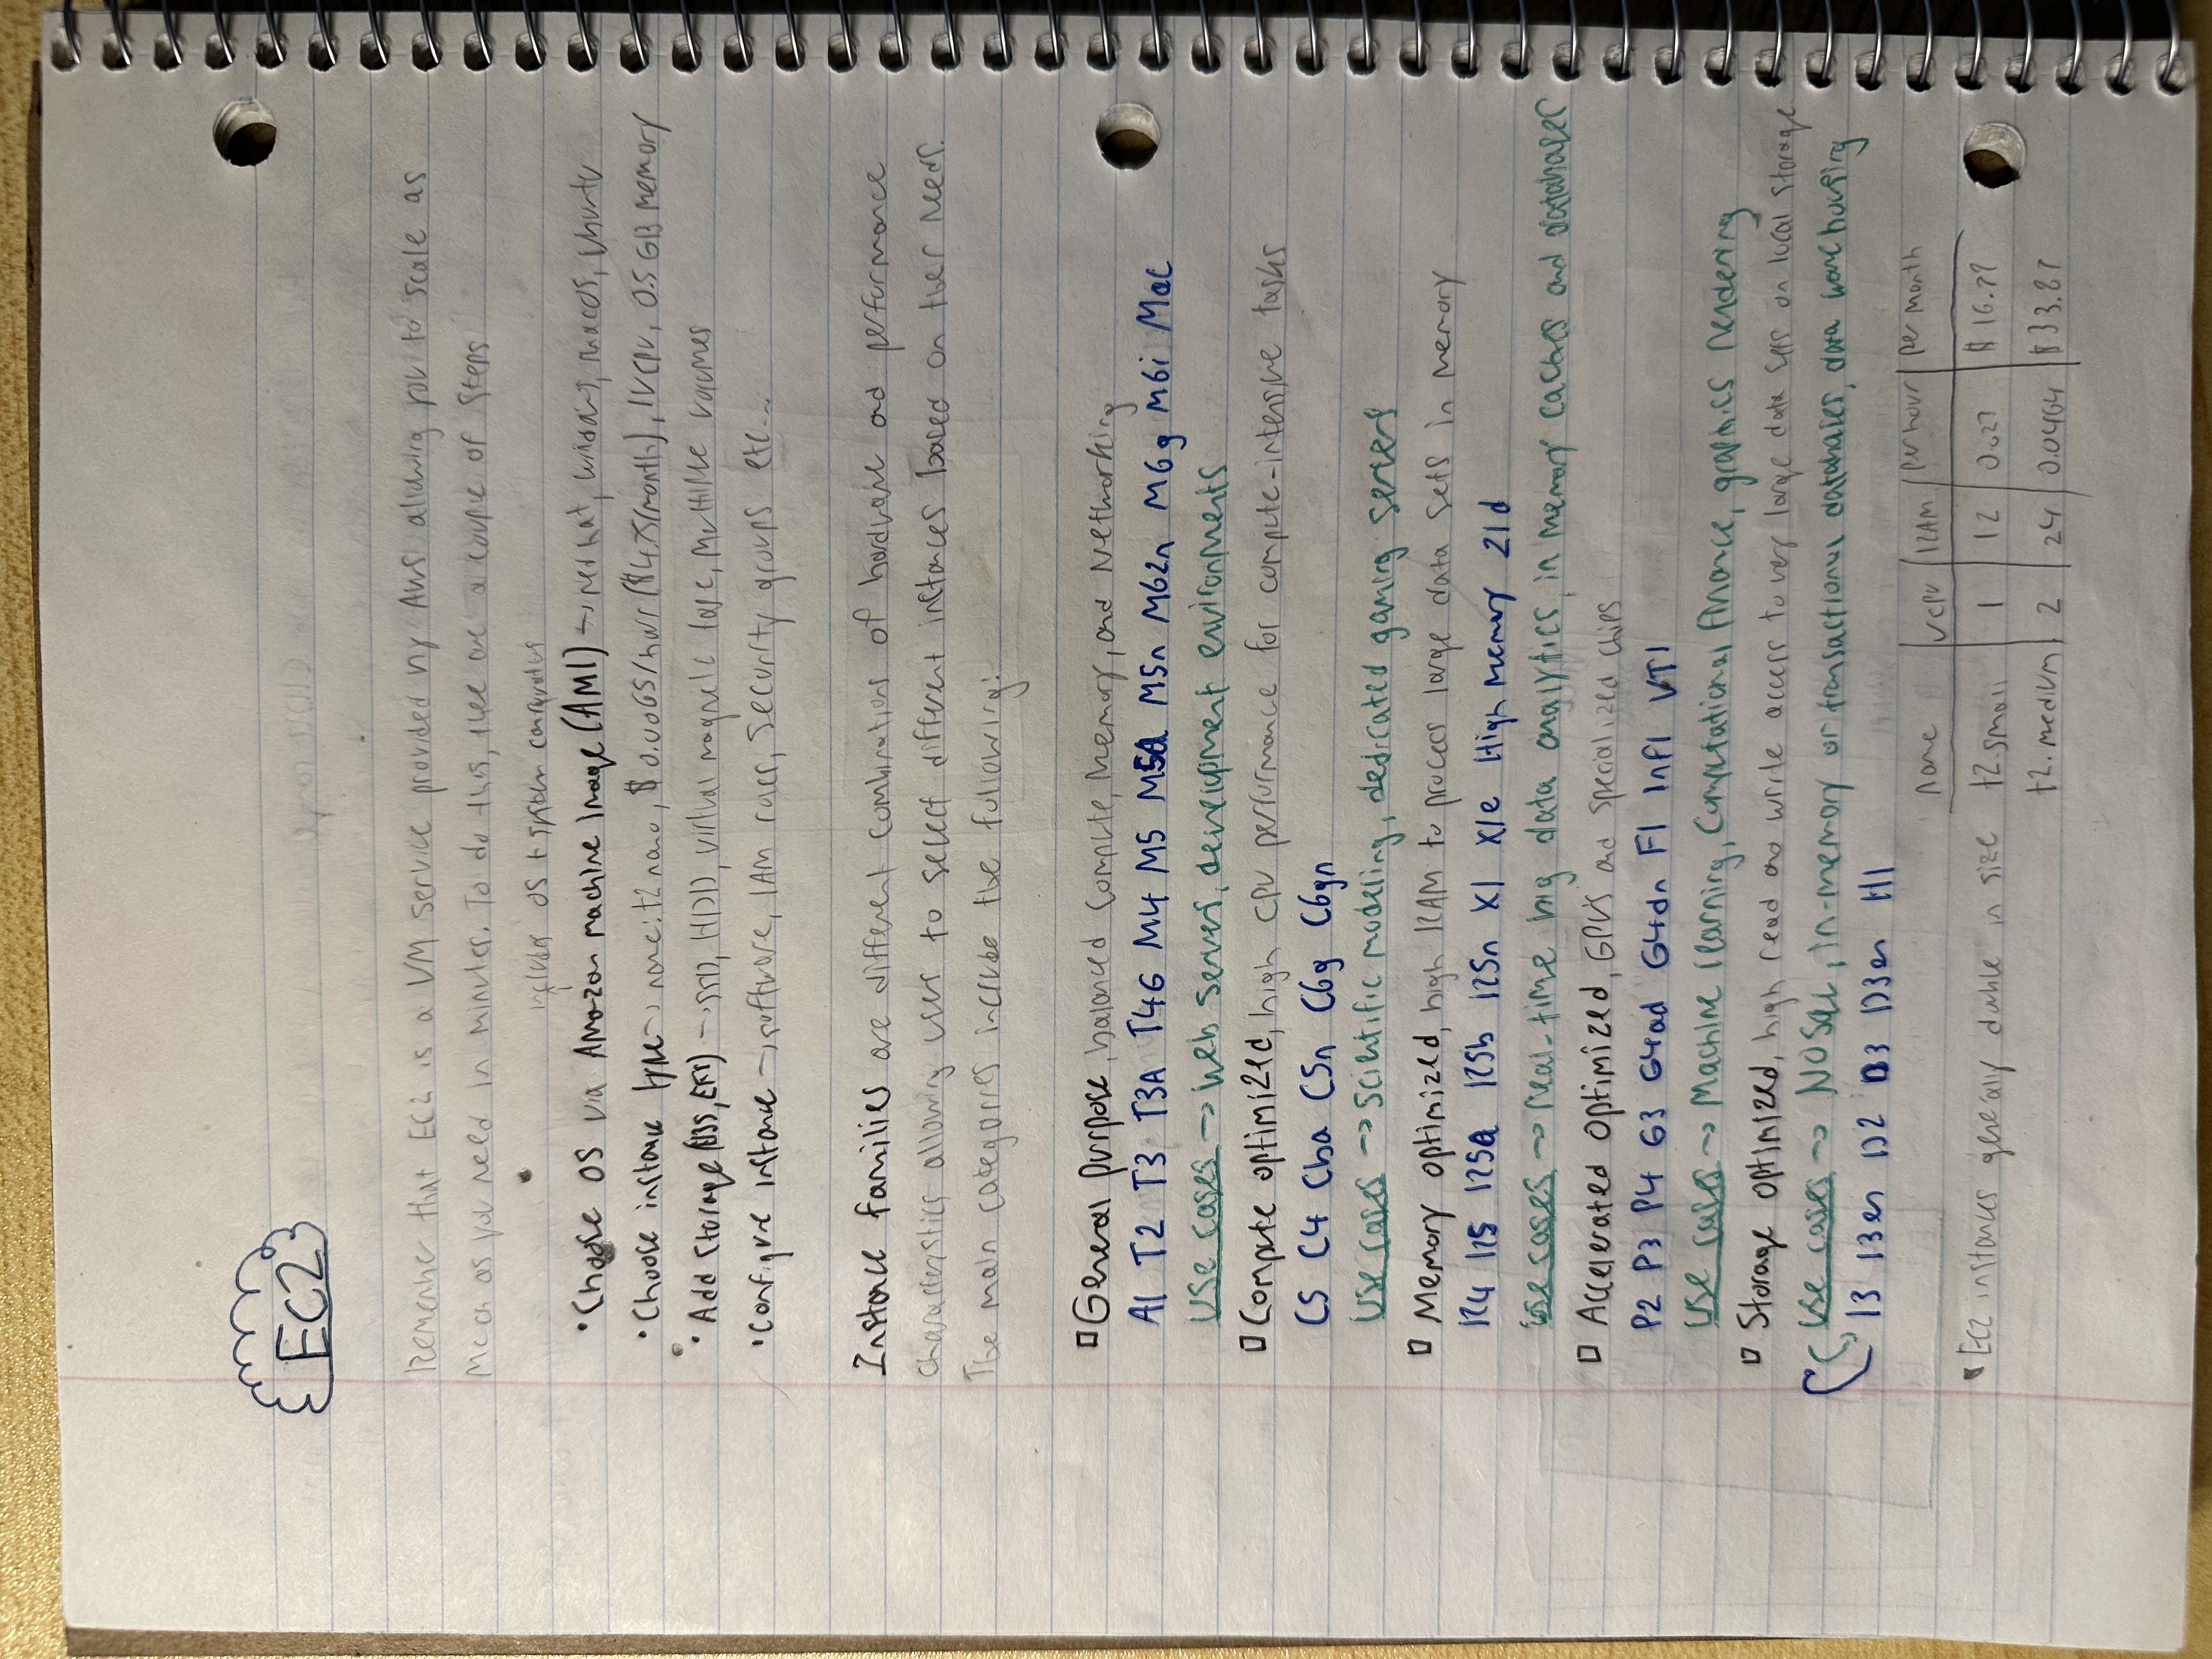 EC2
Remember that EC2 is a VM service provided by AWS allowing you to scale as
much as you need in minutes. To do this, there are a couple of steps
includes OS + system configuration
• Choose OS via Amazon machine image (AMI) → red hat, windows, macOS, Ubuntu
• Choose instance type → name: t2 nano, $0.0065/hour ($4.75/month), 1VCPU, 0.5 GB memory
• Add storage (EBS, EFS) → SSD, HDD, virtual magnetic tape, multiple volumes
• Configure instance → software, IAM roles, security groups etc...
Instance families are different combinations of hardware and performance
characteristics allowing users to select different instances based on their needs.
The main categories include the following:
General purpose, balanced compute, memory, and networking
A1 T2 T3 T3A T4G M4 M5 M5a M5n M62n M6g M6i Mac
Use cases → web server, development environments
Compute optimized, high CPU performance for compute-intensive tasks
C5 C4 Cba C5n C6g C6gn
Use cases → scientific modeling, dedicated gaming servers
Memory optimized, high RAM to process large data sets in memory
R4 R5 R5a R5b R5n X1 X1e High memory Z1d
Use cases → real-time big data analytics, in memory caches and databases
Accelerated optimized, GPU's and specialized chips
P2 P3 P4 G3 G4ad G4dn F1 Inf1 VT1
Use cases → Machine learning, Computational finance, graphics rendering
Storage optimized, high read and write access to very large data sets on local storage
Use cases → NOSQL, in-memory or transactional databases, data warehousing
I3 I3en D2 D3 D3en H1
name vCPU RAM per hour per month
• EC2 instances generally double in size t2.small 1 12 0.023 $16.79
t2.medium 2 24 0.0464 $33.87